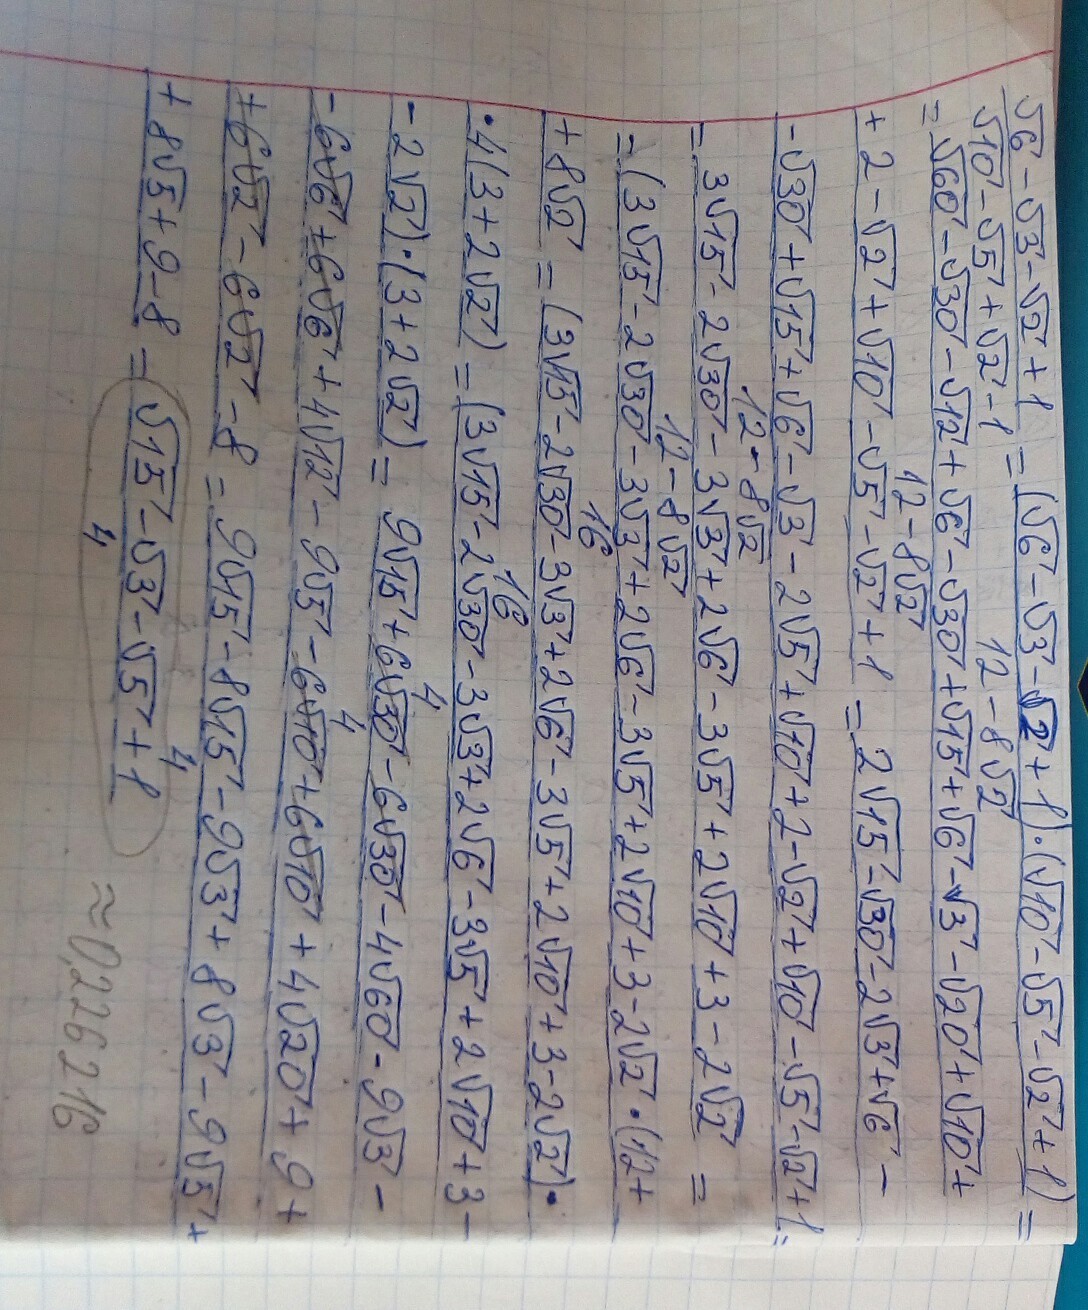 √6 - √3 - √2 + 1 / √10 - √5 + √2 - 1 = (√6 - √3 - √2 + 1)·(√10 - √5 - √2 + 1) / 12 - 8√2 =
= √60 - √30 - √12 + √6 - √30 + √15 + √6 - √3 - √20 + √10 + / 12 - 8√2
+ 2 - √2 + √10 - √5 - √2 + 1 = 2√15 - √30 - 2√3 + √6 -
- √30 + √15 + √6 - √3 - 2√5 + √10 + 2 - √2 + √10 - √5 - √2 + 1 = / 12 - 8√2
= 3√15 - 2√30 - 3√3 + 2√6 - 3√5 + 2√10 + 3 - 2√2 = / 12 - 8√2
= (3√15 - 2√30 - 3√3 + 2√6 - 3√5 + 2√10 + 3 - 2√2·(12 + / 16
+ 8√2 = (3√15 - 2√30 - 3√3 + 2√6 - 3√5 + 2√10 + 3 - 2√2)· / 16
·4(3 + 2√2) = (3√15 - 2√30 - 3√3 + 2√6 - 3√5 + 2√10 + 3 - / 4
- 2√2)·(3 + 2√2) = 9√15 + 6√30 - 6√30 - 4√60 - 9√3 - / 4
- 6√6 + 6√6 + 4√12 - 9√5 - 6√10 + 6√10 + 4√20 + 9 +
+ 6√2 - 6√2 - 8 = 9√15 - 8√15 - 9√3 + 8√3 - 9√5 + / 4
+ 8√5 + 9 - 8 = √15 - √3 - √5 + 1 / 4
≈ 0,226216